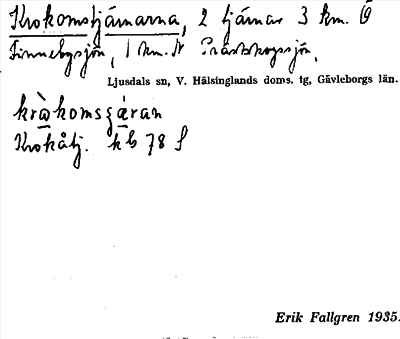 Krokomstjärnarna, 2 tjärnar 3 km. Ö
Finnebysjön, 1 km. N Prästskogssjön.
Ljusdals sn, V. Hälsinglands doms. tg, Gävleborgs län.
kråkomsʒäran
Krokåtj. kb 78 S
Erik Fallgren 1935.